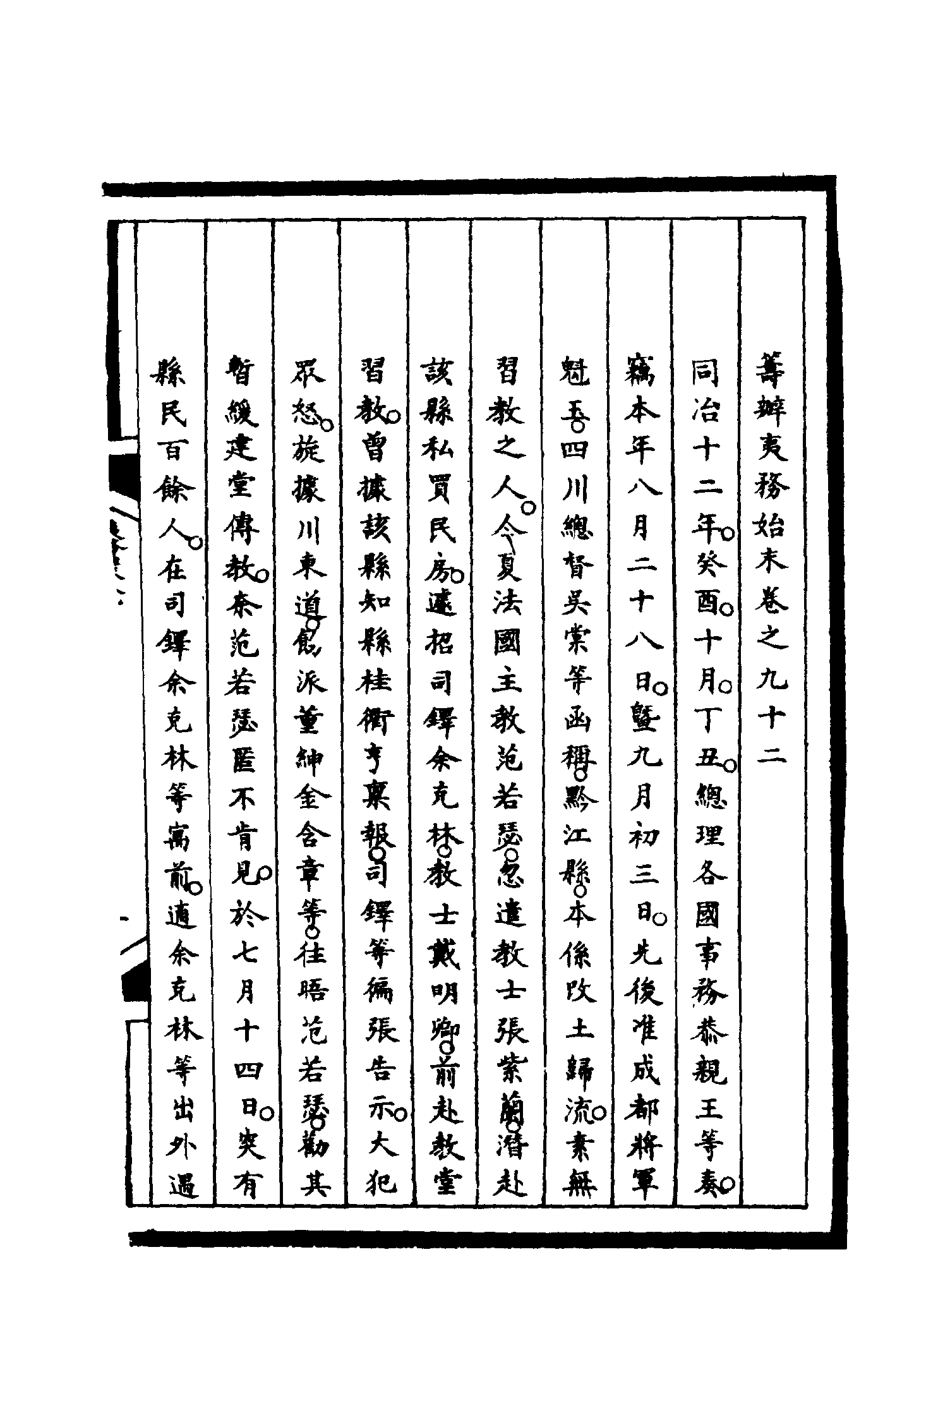 籌辦夷務始末卷之九十二
同治十二年。癸酉。十月。丁丑。總理各國事務恭親王等奏。
竊本年八月二十八日。曁九月初三日。先後准成都將軍
魁玉。四川總督吳棠等函稱。黔江縣。本係改土歸流。素無
習教之人。今夏法國主教范若瑟。忽遣教士張紫蘭。潛赴
該縣私買民房。遽招司鐸余克林。教士戴明卿。前赴教堂
習教。曾據該縣知縣桂衢亨稟報。司鐸等徧張告示。大犯
眾怒。旋據川東道。飭派董紳金含章等。往晤范若瑟。勸其
暫緩建堂傳教。柰范若瑟匿不肯見。於七月十四日。突有
縣民百餘人。在司鐸余克林等寓前。適余克林等出外遇